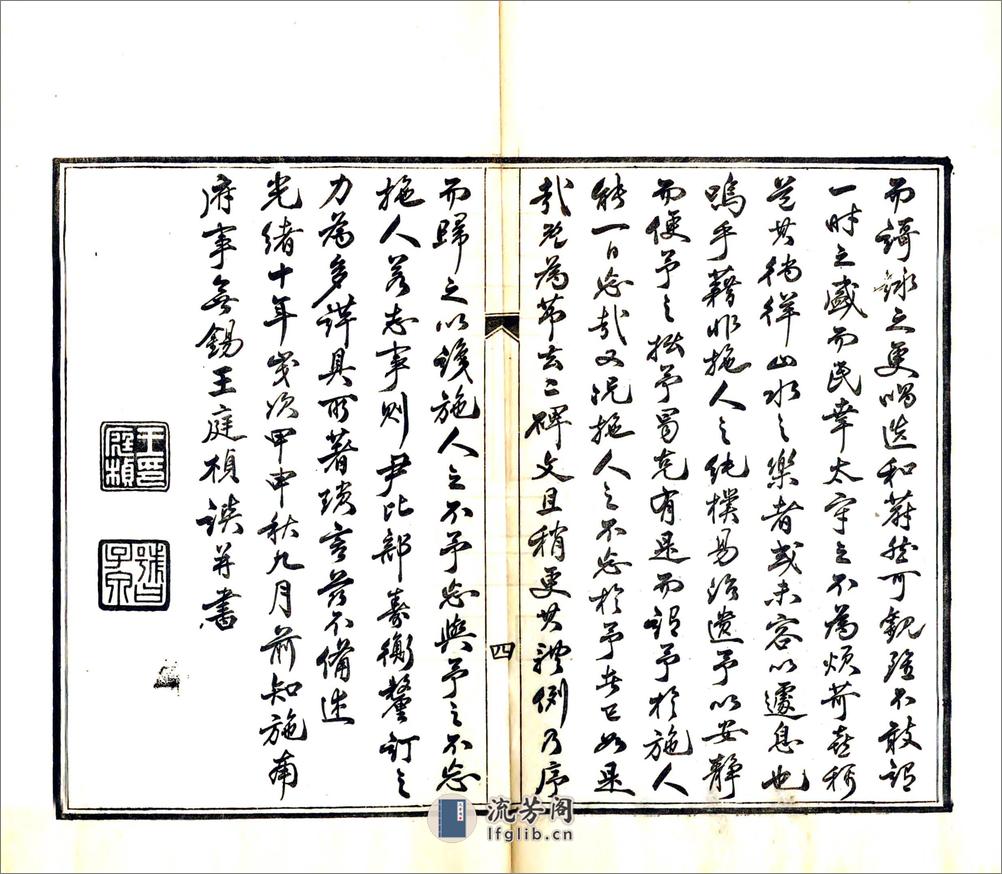 而謌詠之更唱迭和蔚然可觀雖不敢謂
一時之盛而民幸太守之不為煩苛喜稱
道其徜徉山水之樂者或未容以遽息也
嗚乎藉非施人之純樸易治遺予以安靜
而便予之拙予曷克有是而謂予於施人
能一日忘哉又況施人之不忘於予者已如是
哉爰為節去二碑文且稍更其體例乃序
而歸之以諗施人之不予忘與予之不忘
施人若志事則尹比部壽衡釐訂之
力為多詳具所著瑣言茲不備述
光緒十年歲次甲申秋九月前知施南
府事無錫王庭楨譔并書
王印庭楨
號曰子泉
四
流芳阁
lfglib.cn